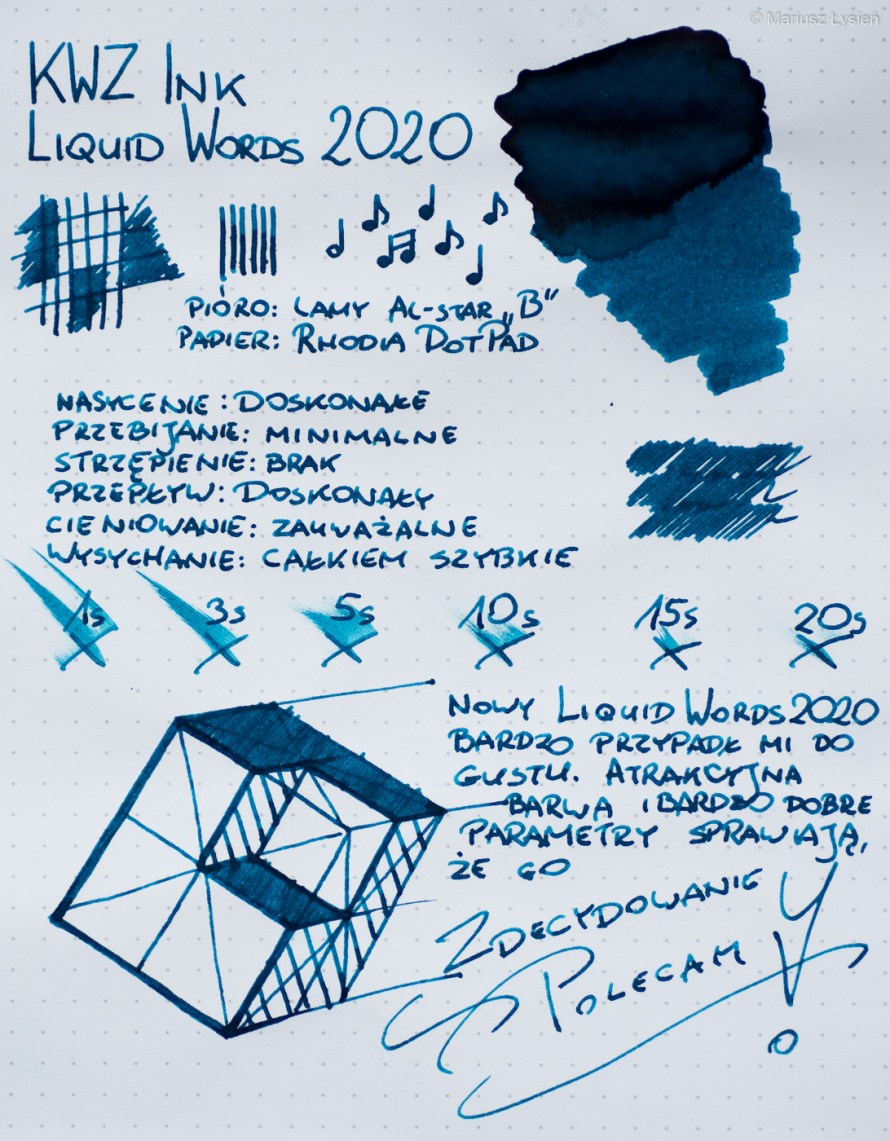 © Mariusz Łysień
KWZ Ink
Liquid Words 2020
Pióro: Lamy Al-star „B”
Papier: Rhodia DotPad
Nasycenie: Doskonałe
Przebijanie: minimalne
Strzępienie: Brak
Przepływ: Doskonały
Cieniowanie: zauważalne
Wysychanie: całkiem szybkie
1s 3s 5s 10s 15s 20s
Nowy Liquid Words 2020
bardzo przypadł mi do
gustu. Atrakcyjna
barwa i bardzo dobre
parametry sprawiają,
że go
Zdecydowanie
Polecam!